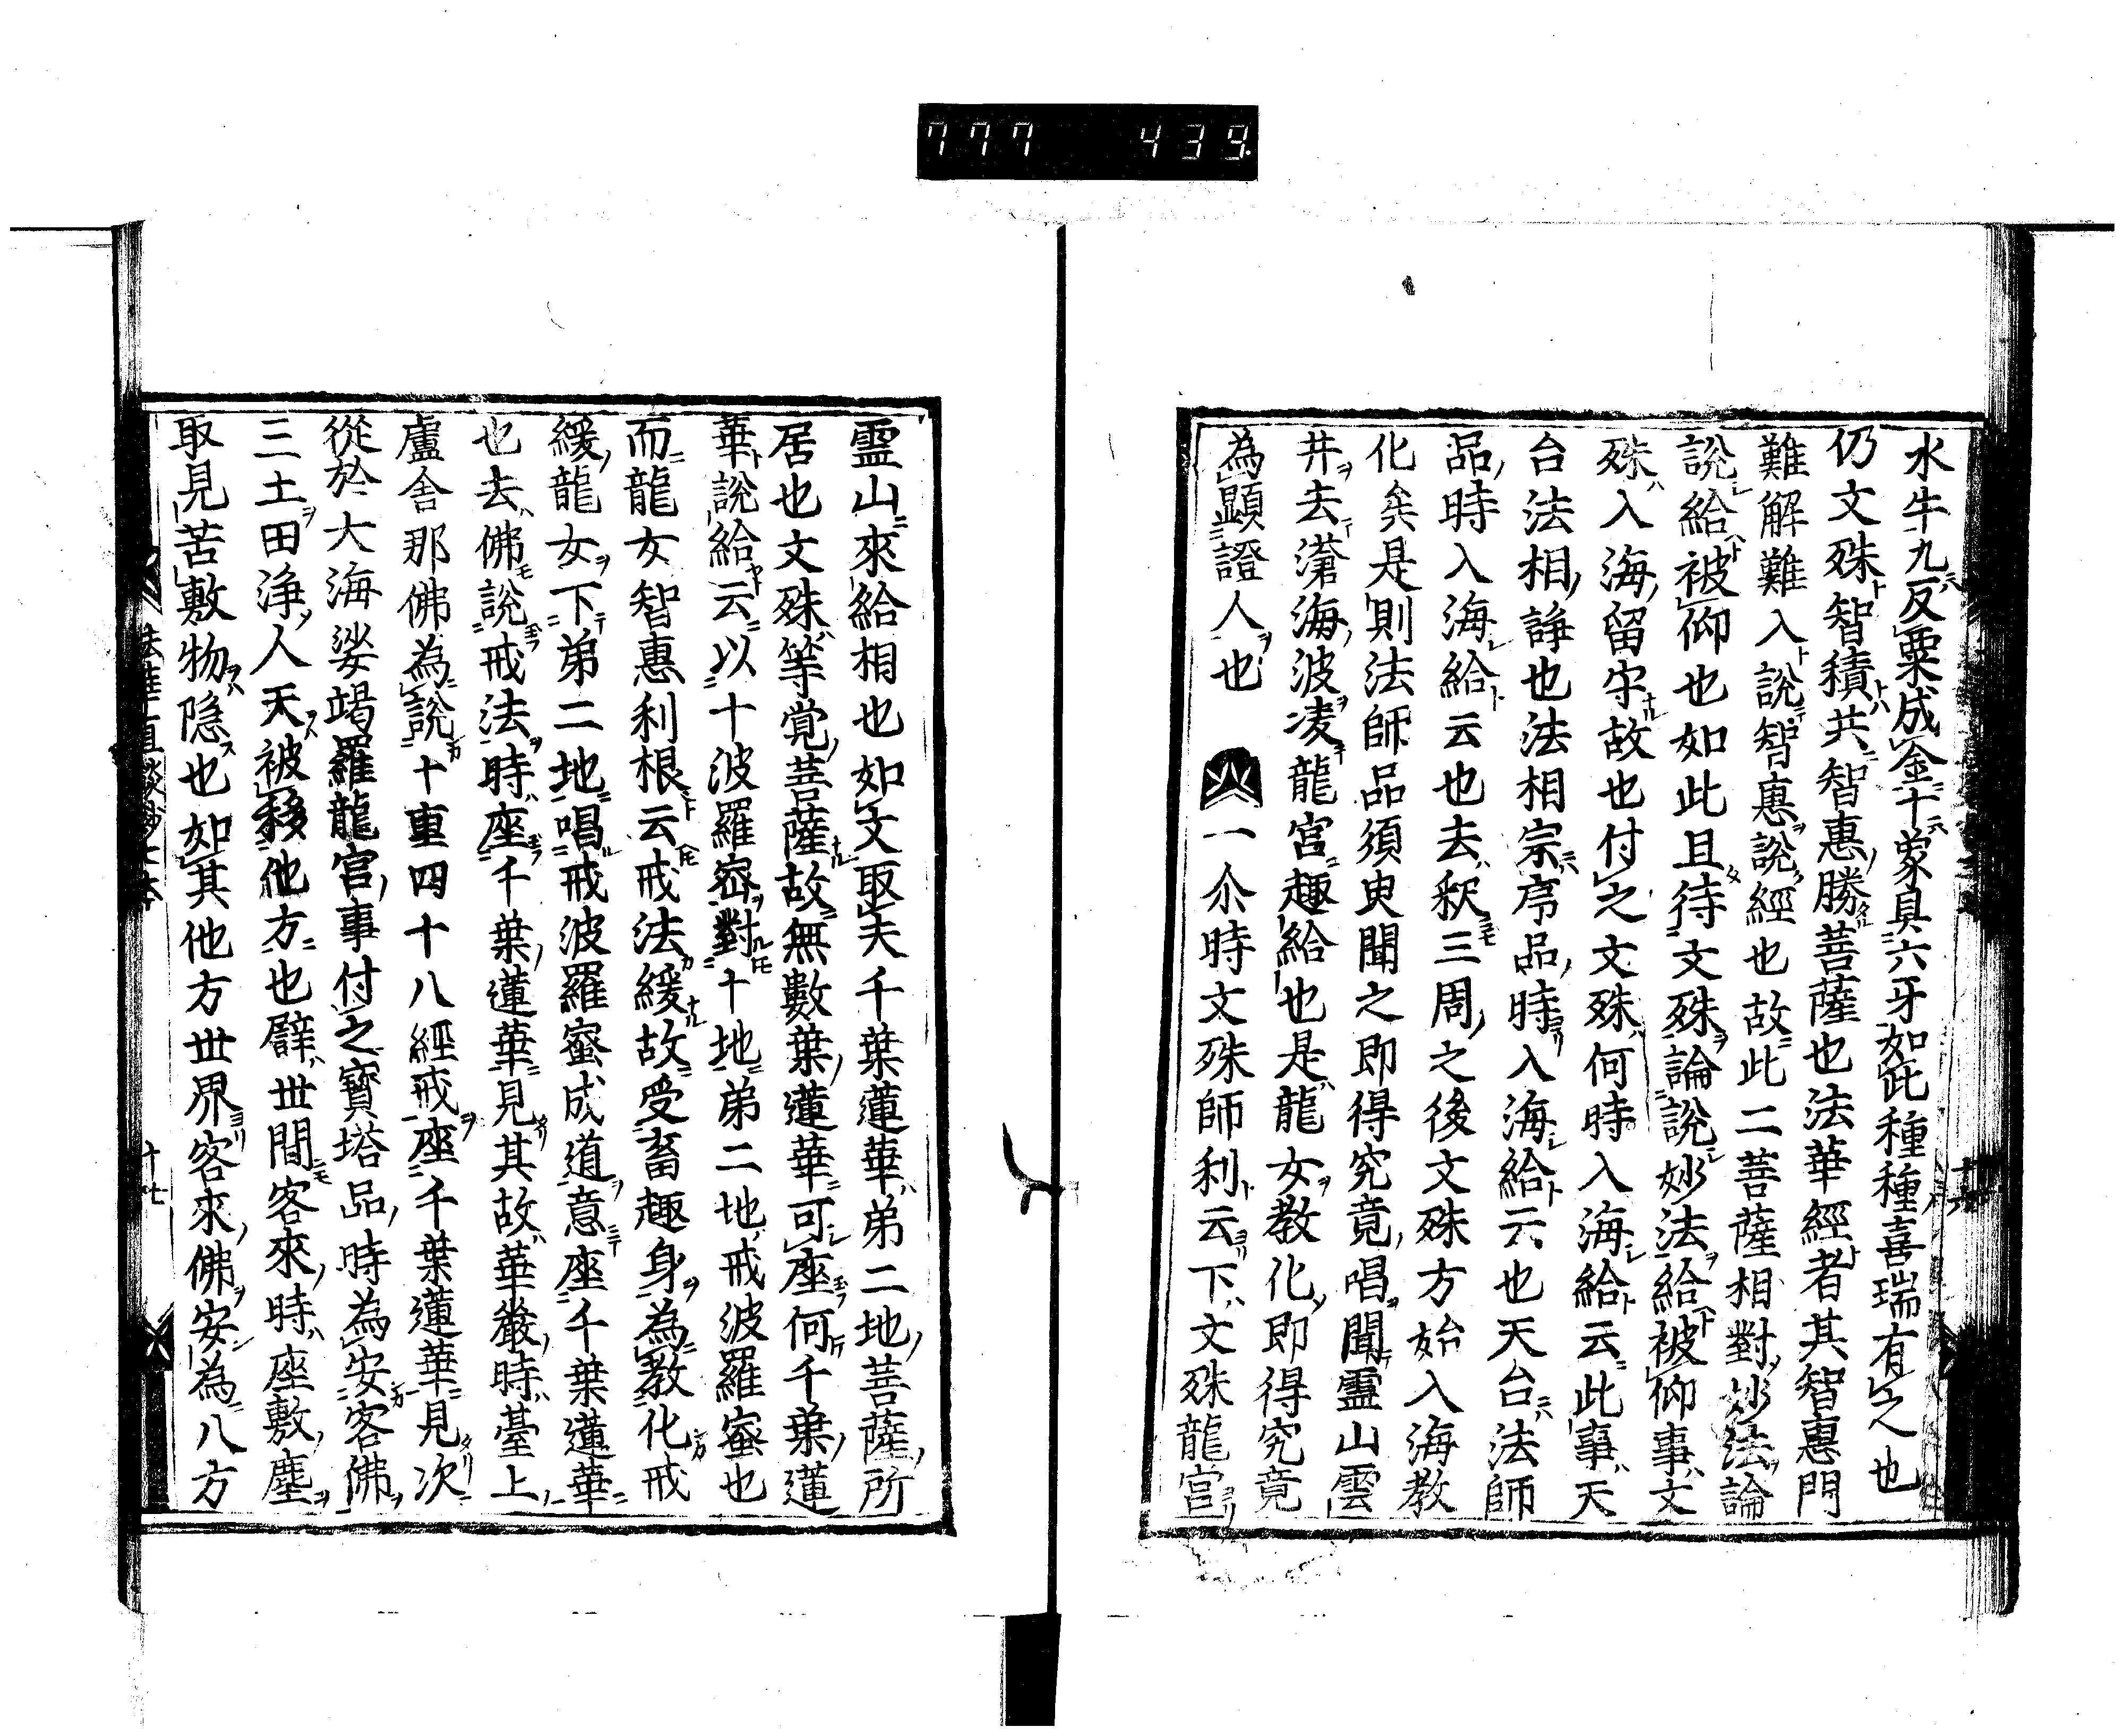 777 439
水牛九反粟成金十象具六牙如此種種喜瑞有之也
仍文殊智積共智惠勝菩薩也法華經者其智惠門
難解難入說智惠說經也故此二菩薩相對妙法論
說給被仰也如此且待文殊論說妙法給被仰事文
殊入海留守故也付之文殊何時入海給云此事天
台法相諍也法相宗序品時入海給云也天台法師
品時入海給云也去釈三周之後文殊方始入海教
化矣是則法師品須臾聞之即得究竟唱聞霊山雲
井去滄海波凌龍宮趣給也是龍女教化即得究竟
為顕證人也 一尒時文殊師利云下文殊龍宮
霊山來給相也如文取夫千葉蓮華弟二地菩薩所
居也文殊等覚菩薩故無數葉蓮華可座何千葉蓮
華說給云以十波羅密對十地弟二地戒波羅蜜也
而龍女智惠利根云戒法緩故受畜趣身為教化戒
緩龍女下弟二地唱戒波羅蜜成道意座千葉蓮華
也去佛說戒法時座千葉蓮華見其故華嚴時臺上
盧舎那佛為說十重四十八經戒座千葉蓮華見次
從於大海娑竭羅龍宮事付之寶塔品時為安客佛
三土田浄人天被移他方也譬世間客來時座敷塵
取見苦敷物隠也如其他方世界客來佛安為八方
法華直談鈔七本 十七